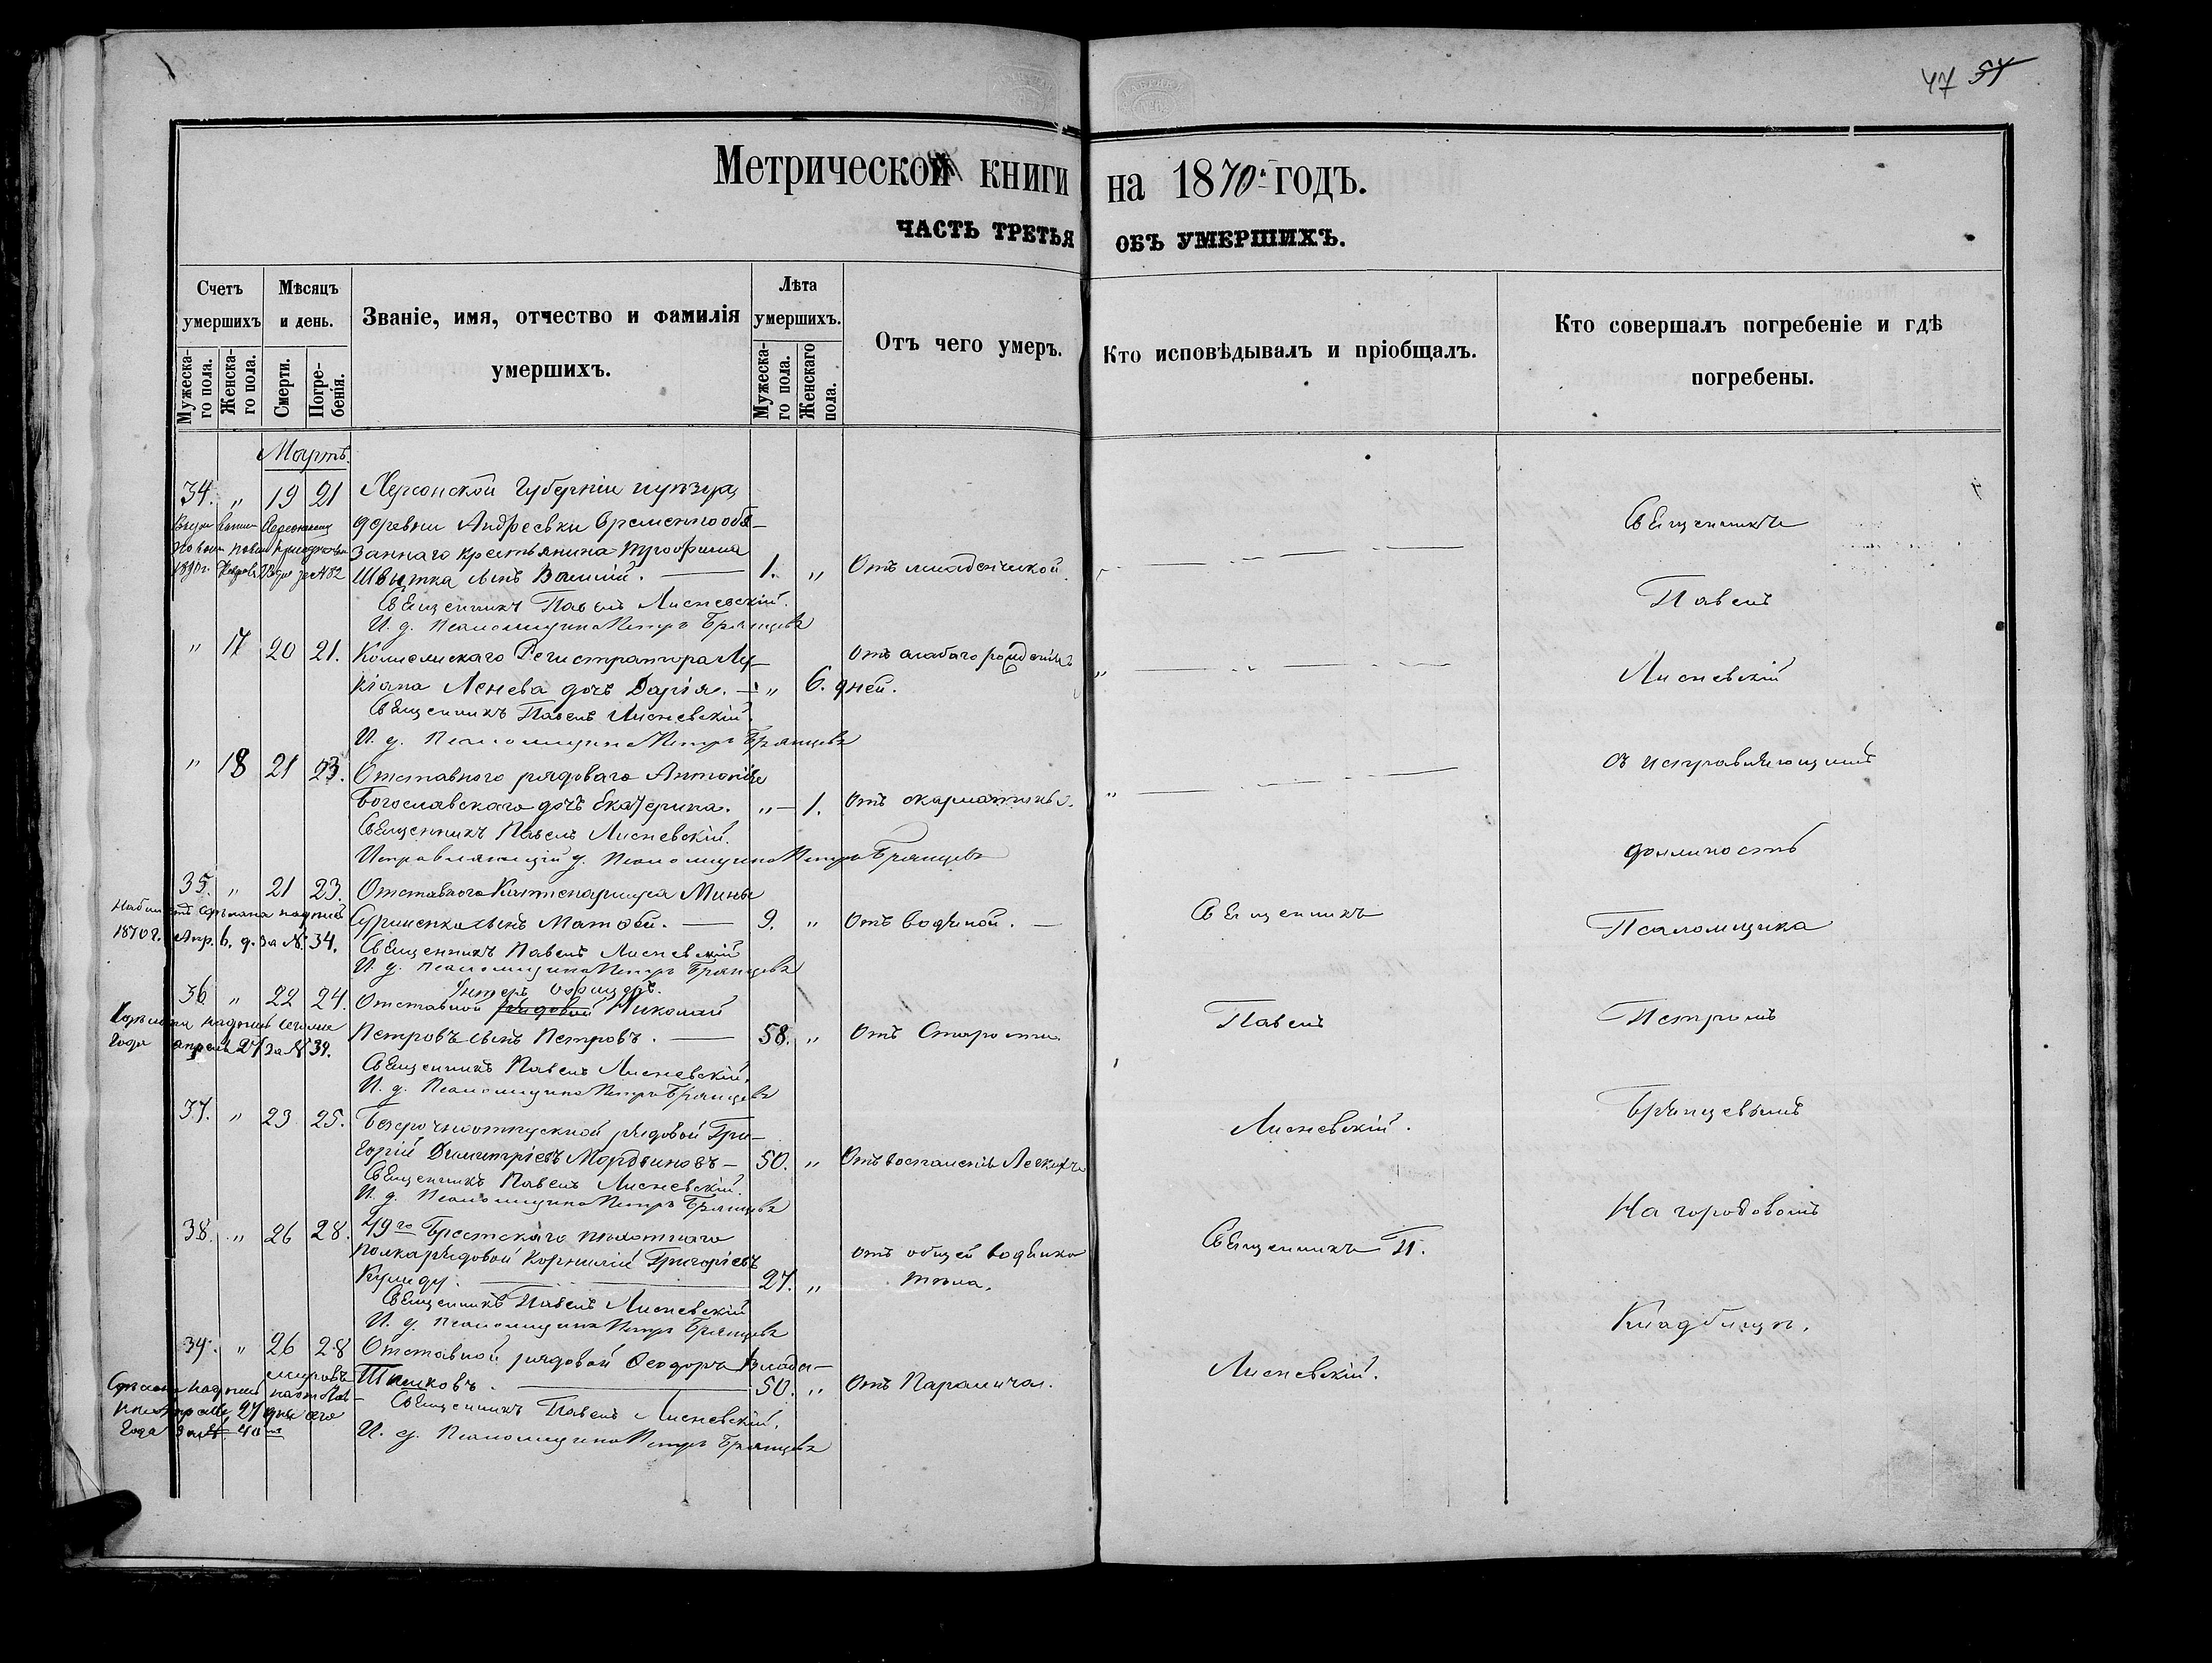 47 54
Метрической книги на 1870 годъ.
ЧАСТЬ ТРЕТЬЯ ОБЪ УМЕРШИХЪ.
Счетъ умершихъ
Мужеска-го пола.
Женска-го пола.
Мѣсяцъ и день.
Смерти.
Погре-бенія.
Званіе, имя, отчество и фамилія умершихъ.
Лѣта умершихъ.
Мужеска-го пола.
Женскаго пола.
Отъ чего умеръ.
Кто исповѣдывалъ и пріобщалъ.
Кто совершалъ погребеніе и гдѣ погребены.
Мартъ.
34. „ 19 21 Херсонской Губерніи и уѣзда
деревни Андреевки временнообя-
заннаго крестьянина
сынъ 1. „ Отъ младенческой
Священникъ Павелъ Лисневскій.
И. д. Псаломщика Петръ Брянцевъ
„ 17 20 21. Коллежскаго Регистратора Лу-
кіана Ленева дочь Дарія. — „ 6. дней. Отъ слабаго рожденія
Священникъ Павелъ Лисневскій.
И. д. Псаломщика Петръ Брянцевъ
„ 18 21 23. Отставного рядоваго Антонія
Богославскаго дочь Екатерина. „ — 1. Отъ скарлатины.
Священникъ Павелъ Лисневскій.
Исправляющій д. Псаломщика Петръ Брянцевъ
35. „ 21 23. Отставного Мины
сынъ Матвей. — 9. „ Отъ водяной. —
1870 г. Апр. 6. д. за №. 34.
Священникъ Павелъ Лисневскій
И. д. Псаломщика Петръ Брянцевъ
Унтеръ офицеръ.
36 „ 22 24. Отставной рядовой Николай
Петровъ сынъ Петровъ. — 58. „ Отъ Старости.
года апреля за № 39.
Священникъ Павелъ Лисневскій.
И. д. Псаломщика Петръ Брянцевъ
37. „ 23 25. Безсрочноотпускной рядовой Гри-
горій Димитріевъ Мордвиновъ — 50. „ Отъ воспаленія Легкихъ
Священникъ Павелъ Лисневскій.
И. д. Псаломщика Петръ Брянцевъ
38. „ 26 28. 49го Брестскаго пѣхотнаго
полка рядовой Корнилій Григорьевъ
27. „ отъ общей водянки
тѣла.
Священникъ Павелъ Лисневскій
И. д. Псаломщика Петръ Брянцевъ
39. „ 26 28 Отставной рядовой Ѳеодоръ
50. „ Отъ Паралича.
27 дня сего
года за №. 40
Священникъ Павелъ Лисневскій.
И. д. Псаломщика Петръ Брянцевъ
Священникъ
Павелъ
Лисневскій.
Священникъ П.
Лисневскій.
Священникъ
Павелъ
Лисневскій
съ исправляющимъ
должность
Псаломщика
Петромъ
Брянцевымъ
На городовомъ
Кладбищѣ.